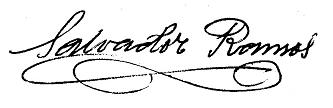 Salvador Ramos